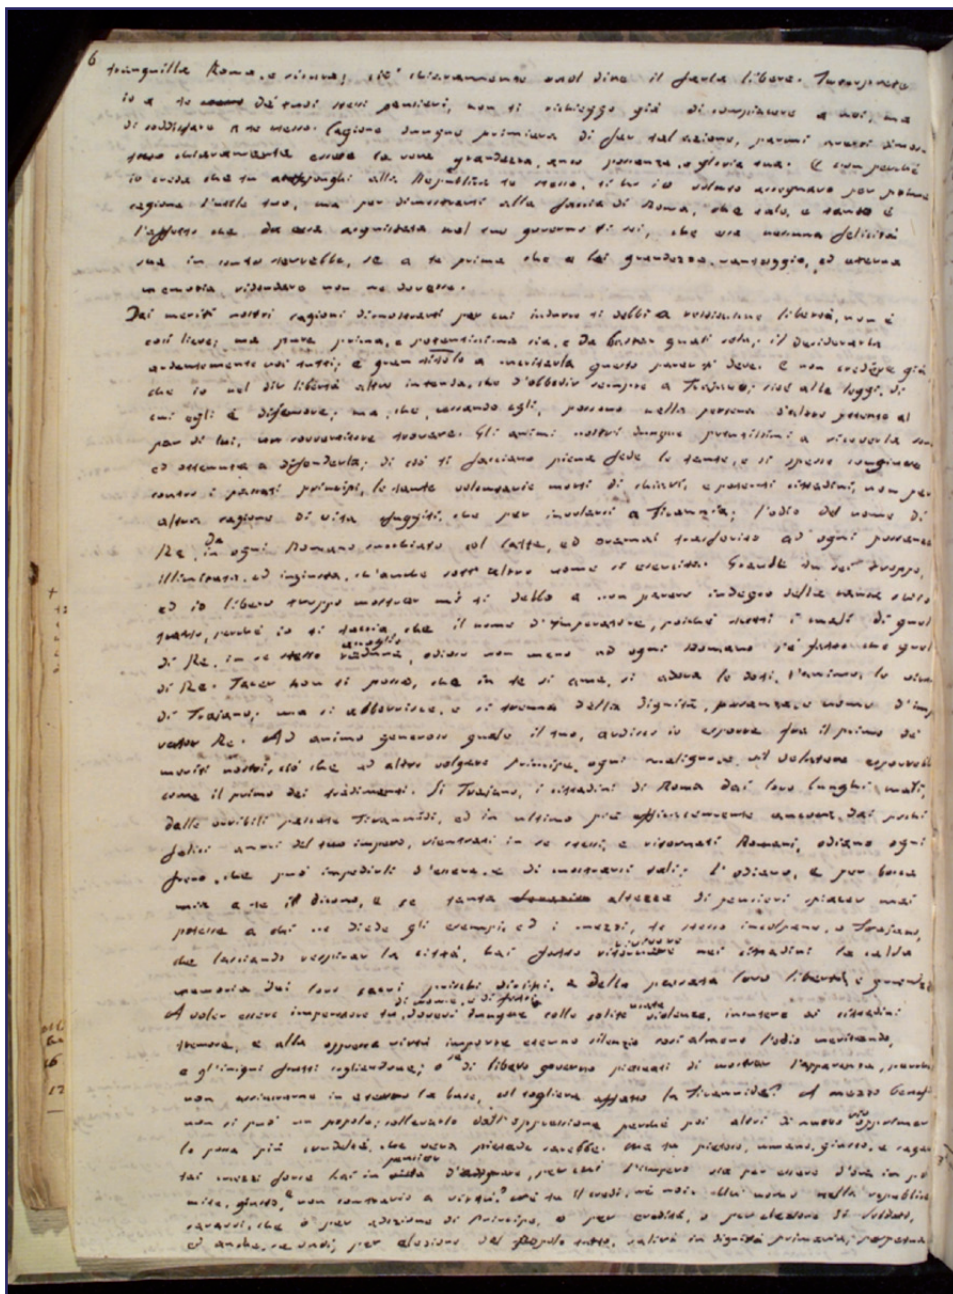 6
tranquilla Roma, e sicura; ciò chiaramente vuol dire il farla libera. Interprete
io a te de' tuoi stessi pensieri, non ti richieggo già di compiacere a noi, ma
di soddisfare a te stesso. Cagione dunque primiera di far tal azione, parmi averti dimos-
trato chiaramente essere la vera grandezza, anco possanza, e gloria tua. E non perchè
io creda che tu anteponghi alla Repubblica te stesso, ti ho io voluto assegnare per prima
cagione l'utile tuo, ma per dimostrarti alla faccia di Roma, che tale, e tanto è
l'affetto che da essa acquistata nel tuo governo ti sei, che essa nessuna felicità
sua in conto terrebbe, se a te prima che a lei grandezza, vantaggio, ed eterna
memoria, ridondare non ne dovesse.
Dei meriti nostri ragioni dimostrarti per cui indurre ti debbi a restituirne libertà, non è
così lieve; ma pure prima, e potentissima sia, e da bastar quasi sola, il desiderarla
ardentemente noi tutti; e gran titolo a meritarla questo parer ti deve. E non credere già
che io nel dir libertà altro intenda, che d'obbedir sempre a Trajano; cioè alle leggi, di
cui egli è difensore; ma, che, cessando egli, possono nella persona d'altro potente al
par di lui, un sovvertitore trovare. Gli animi nostri dunque prontissimi a riceverla sono
ed ottenuta a difenderla; di ciò ti facciano piena fede le tante, e sì spesse congiure
contro i passati principi, le tante volontarie morti di chiari, e potenti cittadini, non per
altra cagione di vita fuggiti, che per involarsi a Tirannia; l'odio del nome di
Re, da in ogni Romano succhiato col latte, ed oramai trasferito ad ogni possanza
illimitata, ed ingiusta, ch'anche sott'altro nome si eserciti. Grande tu sei troppo,
ed io libero troppo mostrar mi ti debbo a non parere indegno della
perchè io ti taccia, che il nome d'Imperatore, poichè tutti i mali di quel
di Re, in se stesso accoglie, odioso non meno ad ogni Romano s'è fatto che quel
di Re. Tacer non ti posso, che in te si ama, si adora le doti, l'animo, le virtù
di Trajano; ma si abborrisce, e si trema della dignità, possanza, e nome d'Im
Re. Ad animo generoso quale il tuo, ardisco io esporre fra il primo de'
meriti nostri, ciò che ad altro volgare Principe, ogni maligno, e vil delatore esporrebbe
come il primo dei tradimenti. Sì Trajano, i cittadini di Roma dai loro lunghi mali,
dalle orribili passate Tirannidi, ed in ultimo più efficacemente ancora, dai pochi
felici anni del tuo impero, rientrati in se stessi, e ritornati Romani, odiano ogni
freno, che può impedirli d'essere, e di mostrarsi tali; l'odiano, e per bocca
mia a te il dicono, e se tanta altezza di pensieri spiacer mai
potesse a chi ne diede gli esempi, ed i mezzi, te stesso incolpane, o Trajano,
che lasciando respirar la città, hai fatto rivivere nei cittadini la calda
memoria dei loro sacri prischi diritti, e della passata loro libertà, e grandezza
di nome, e di fatti
A voler essere imperatore tu, dovevi dunque colle solite usate violenze, incutere ai cittadini
tremore, e alla oppressa virtù imporre eterno silenzio così almeno l'odio meritando,
e gl'iniqui frutti cogliendone; o se di libero governo piaceati di mostrar l'apparenza, perchè
non assicurarne in eterno la base, col togliere affatto la Tirannide? A mezzo benef
non si può un popolo; sollevarlo dall'oppressione perchè poi altri di nuovo vie opprimer
lo possa più crudeltà, che vera pietade sarebbe. Ma tu pietoso, umano, giusto, e
tai mezzi forse hai in pensiero d'assegnare, per cui l'impero sia per essere d'ora in po
giusto, e non contrario a virtù? nè tu il credi, nè noi. Altr'uomo nella repubblica
che o per adozione di Principe, o per eredità, o per elezione di soldati,
ed anche, se vuoi, per elezione del Popolo tutto, salirà in dignità primaria, perpetua